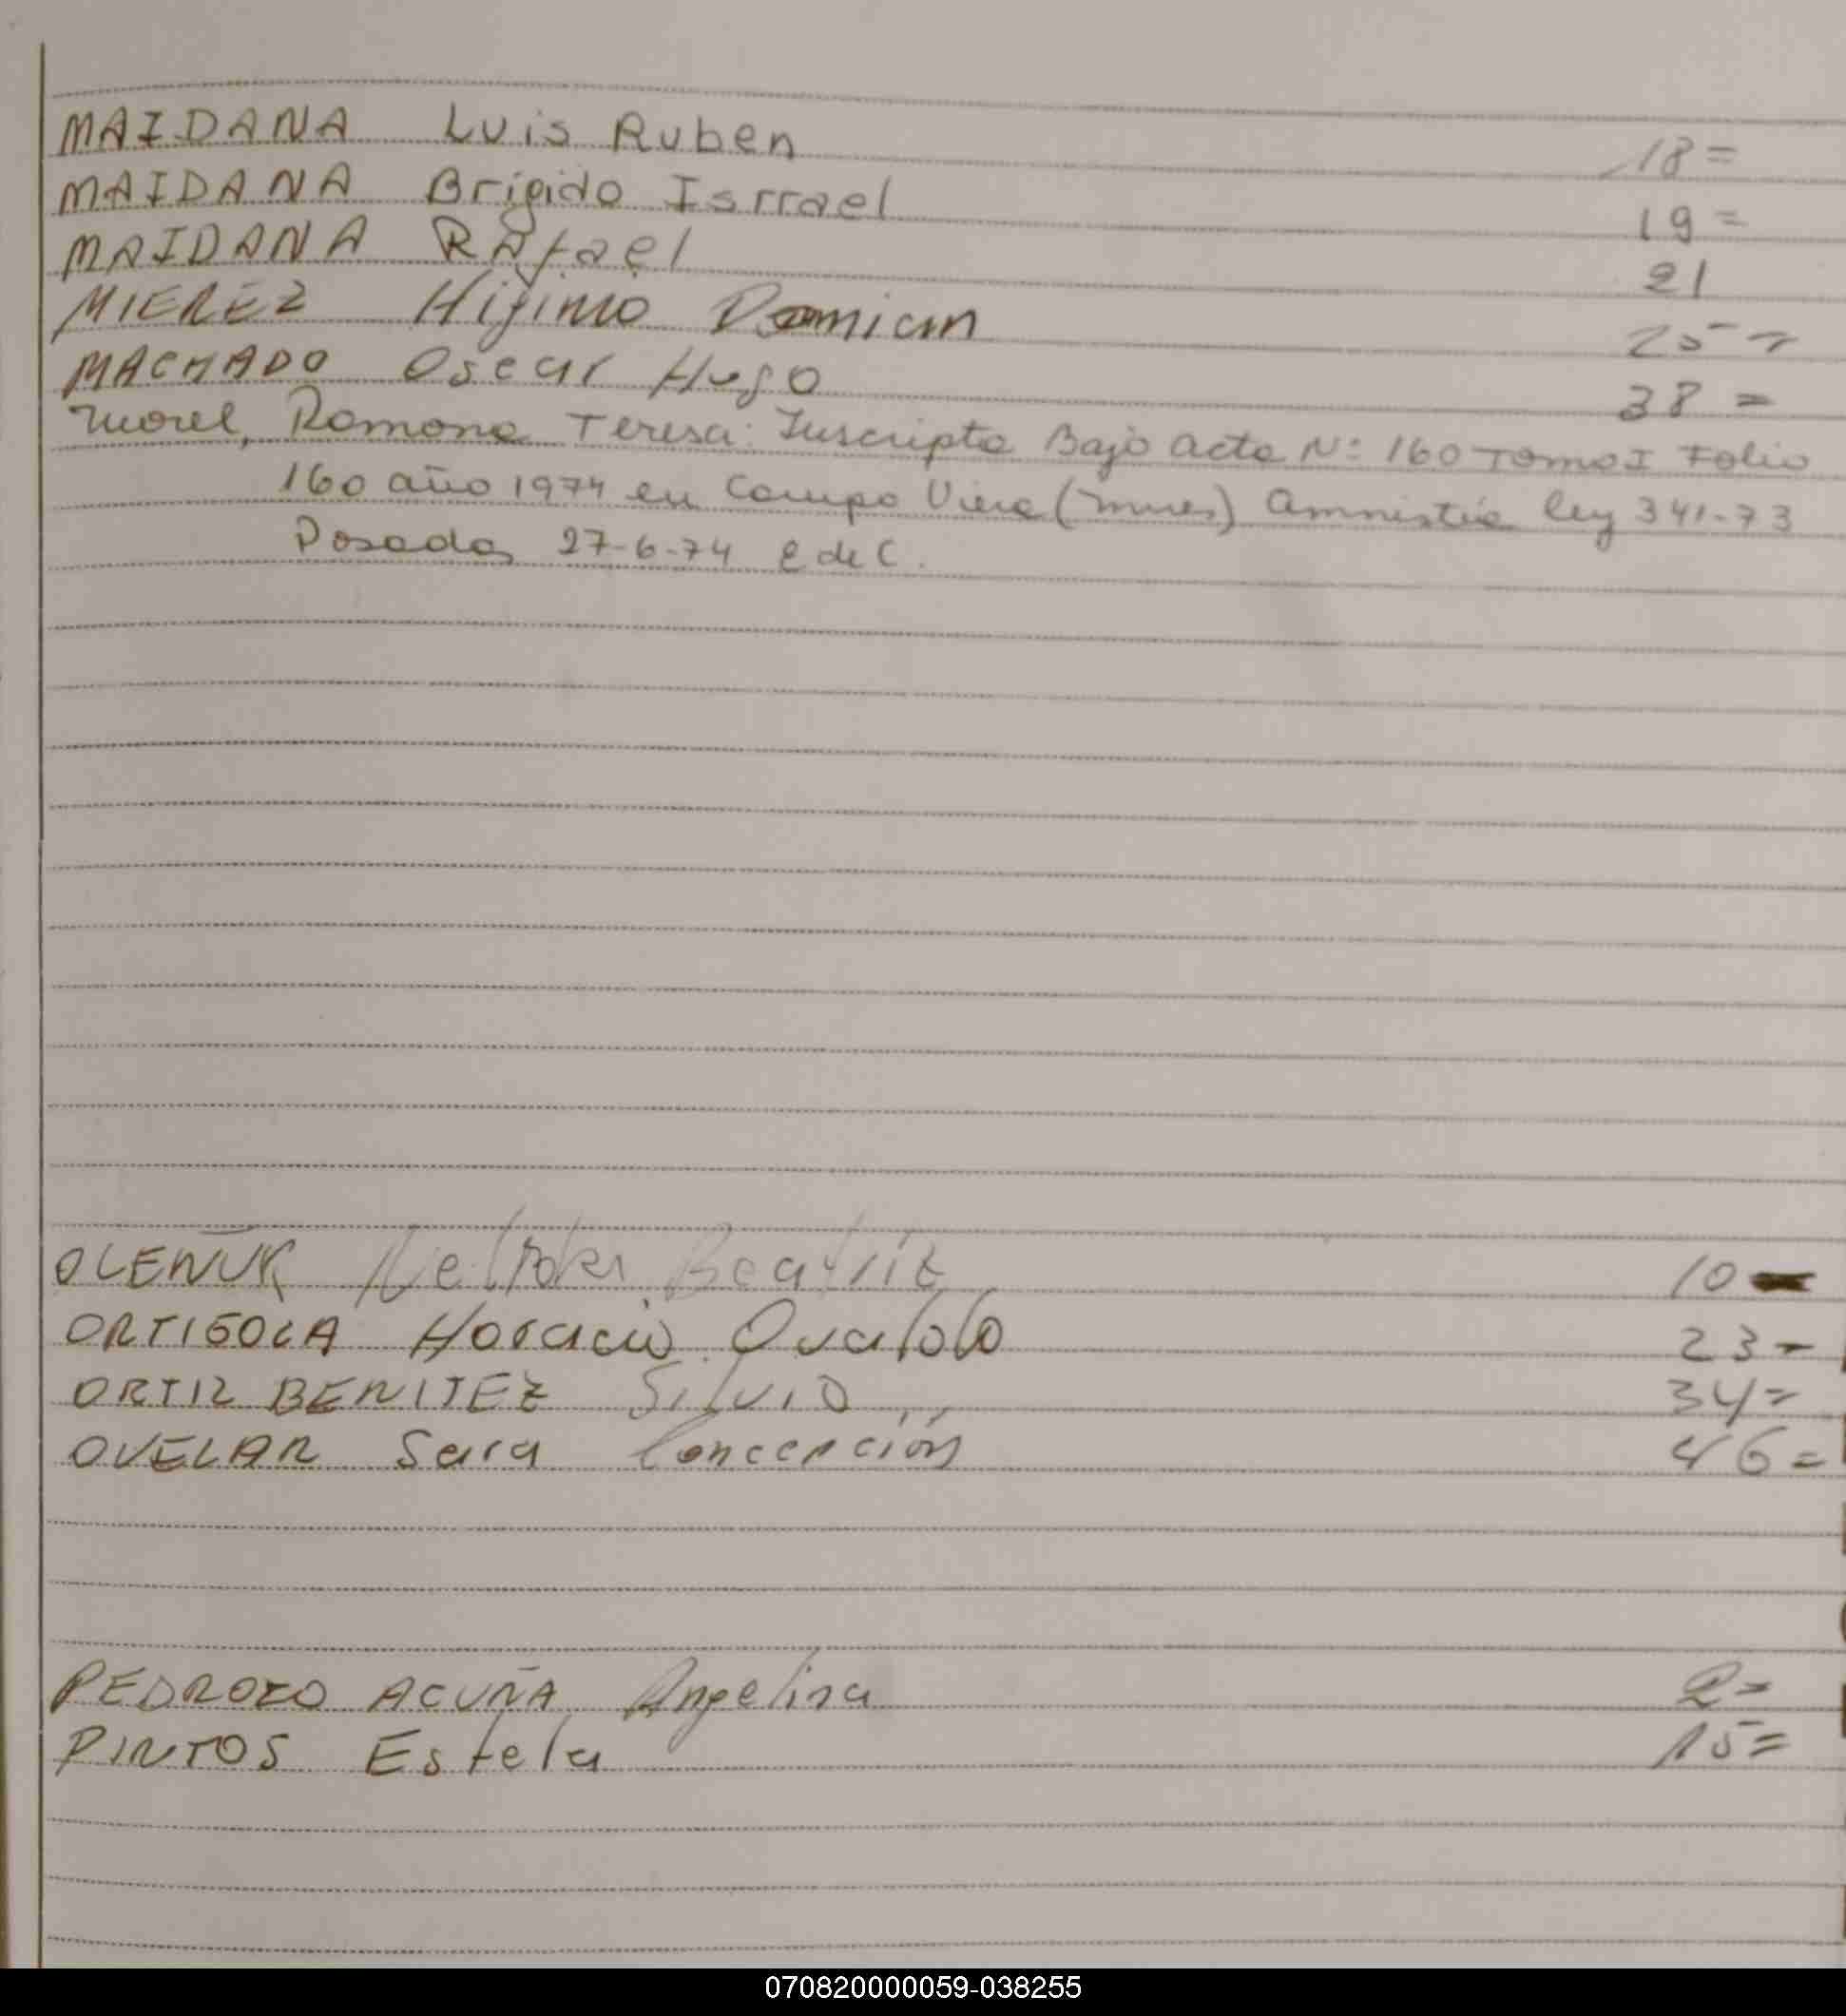 MAIDANA Luis Ruben 18=
MAIDANA Brigido Isrrael 19=
MAIDANA Rafael 21
MIEREZ Higinio Damian 25=
MACHADO Oscar Hugo 38=
Morel, Ramona Teresa: Inscripta Bajo acta Nº 160 Tomo I Folio
160 año 1974 en Campo Viera (Mnes) amnistia ley 341-73
Posadas 27-6-74 E de C.
OLEÑUK Beatriz 10
ORTIGOZA Horacio Ovaldo 23=
ORTIZ BENITEZ Silvio 34=
OVELAR Sara Concepción 46=
PEDROZO ACUÑA Angelina 2=
PINTOS Estela 15=
070820000059-038255